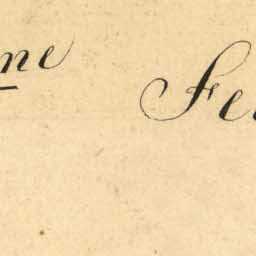 ne Fe